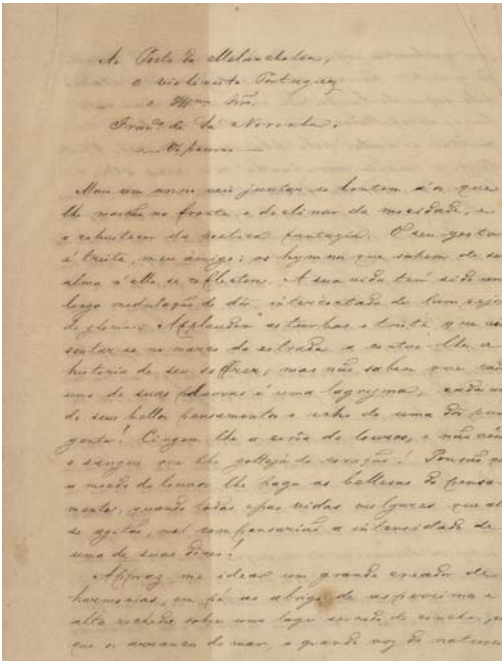 Ao Poeta da Melancholia,
o violinista Portuguez
o Illmo Snr.
Franco de Sá Noronha.
Mau um anno veio juntar-se hontem aos que
lhe no fronte o declinar da mocidade, e
o robustecer da poetica fantazia. O seu gesto
é triste, meu amigo; os hymnos que sahem de su
alma n'elle se reflectem. A sua vida tem sido um
longa modulação de dôr, intercortada de hum
de gloria. Applaudem as turbas o triste que
sentar-se no marco da estrada a contar-lhe a
historia de seu soffrer, mas não sabem que cad
uma de suas palavras é uma lagryma, cada um
de seus bellos pensamentos o echo de uma dôr pun
gente! Cingem-lhe a corôa de louros, e não vêm
o sangue que lhe gotteja do coração! Pensão
a de louros lhe paga as bellezas do pensa
mento, quando todas as vidas vulgares que
se agitão, mal compensarião a intensidade de
uma de suas dôres!
Appraz-me idear um grande creador de
harmonias, em pé, ao abrigo de asperrima e
alta rocha, sobre uma lage
que os arrancos do mar, a grande voz da naturez